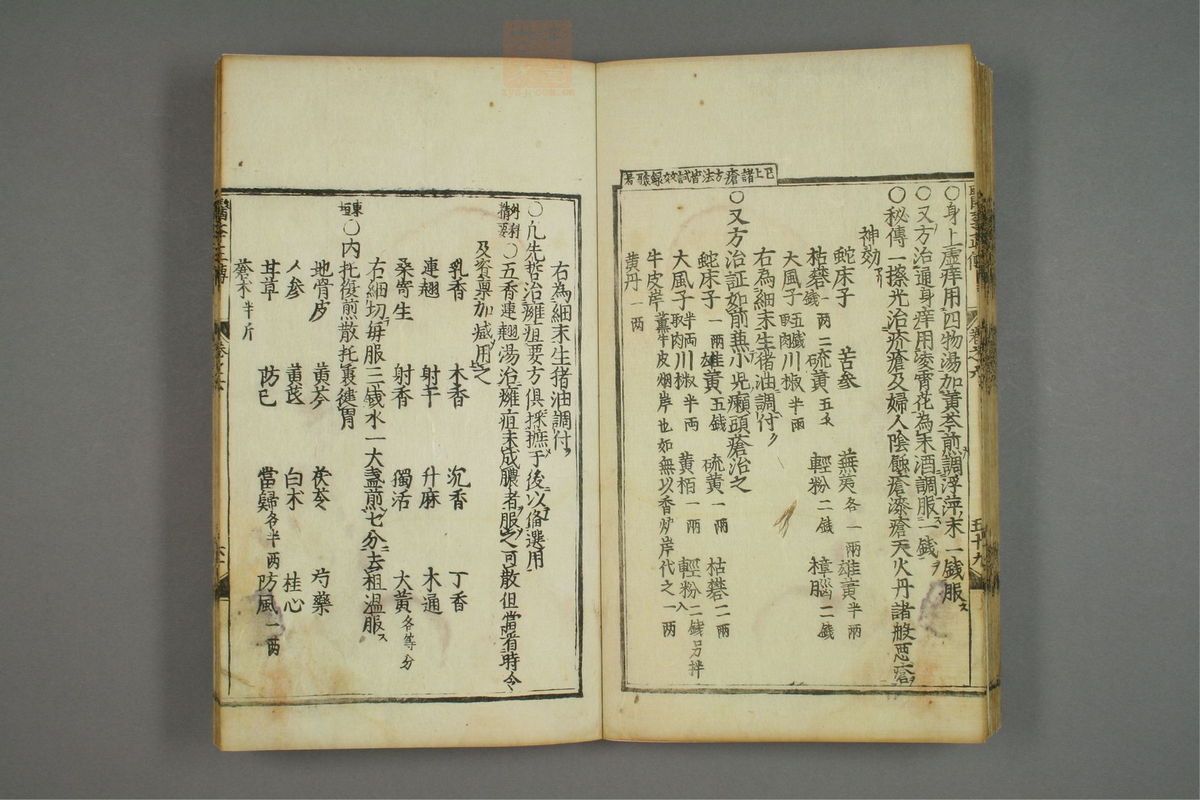 〇身上虛痒用四物湯加黄芩煎調浮萍末一錢服ス
〇又方治通身痒用凌霄花為末酒調服一錢ヲ
〇秘傳一擦光治疥瘡及婦人陰蝕瘡漆瘡天火丹諸般惡瘡ヲ
神効アリ
蛇床子 苦參 蕪荑各一兩 雄黄半兩
枯礬一兩二錢 硫黄五𫝆 輕粉二錢 樟腦二錢
大風子五錢取肉 川椒半兩
右為細末生猪油調付ク
〇又方治証如前兼小児癩頭瘡治之
蛇床子一兩 雄黄五錢 硫黄一兩 枯礬二兩
大風子半兩取肉 川椒半兩 黄栢一兩 輕粉二錢另拌入
牛皮岸薫牛皮烟岸也如無以香炉岸代之一两
黄丹一两
已上諸瘡方法皆試效錄驗者
五十九
右為細末生猪油調付ク
〇凡先哲治癰疽要方俱採摭于後以俻選用
外科精要〇五香連翹湯治癰疽未成膿者服之可散但當看時令
及資稟加減用之
乳香 木香 沉香 丁香
連翹 射干 升麻 木通
桑寄生 射香 獨活 大黄各等分
右細切毎服三錢水一大盞煎七分去粗溫服ス
東垣〇内托復煎散托裏健胃
地骨皮 黄芩 茯苓 芍藥
人參 黄茋 白朮 桂心
甘草 防己 當歸各半两 防風一两
蒼朮半斤